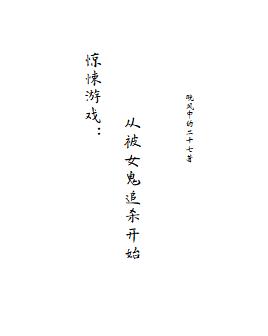 惊悚游戏：
从被女鬼追杀开始
晚风中的二十七著